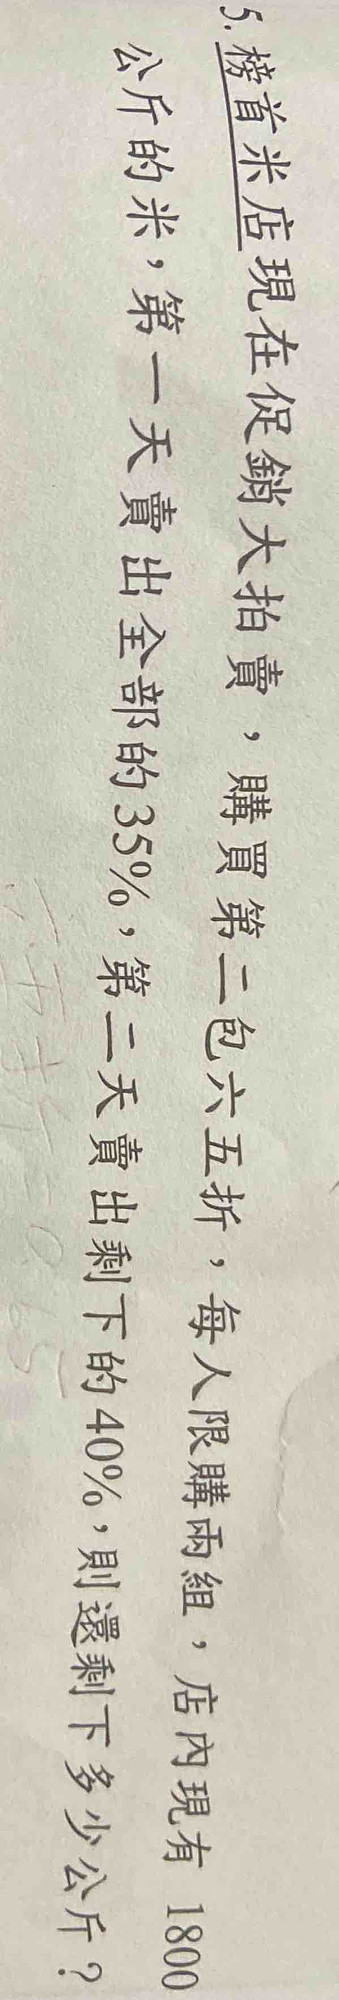 5. 榜首米店現在促銷大拍賣，購買第二包六五折，每人限購兩組，店內現有 1800
公斤的米，第一天賣出全部的35%，第二天賣出剩下的40%，則還剩下多少公斤？